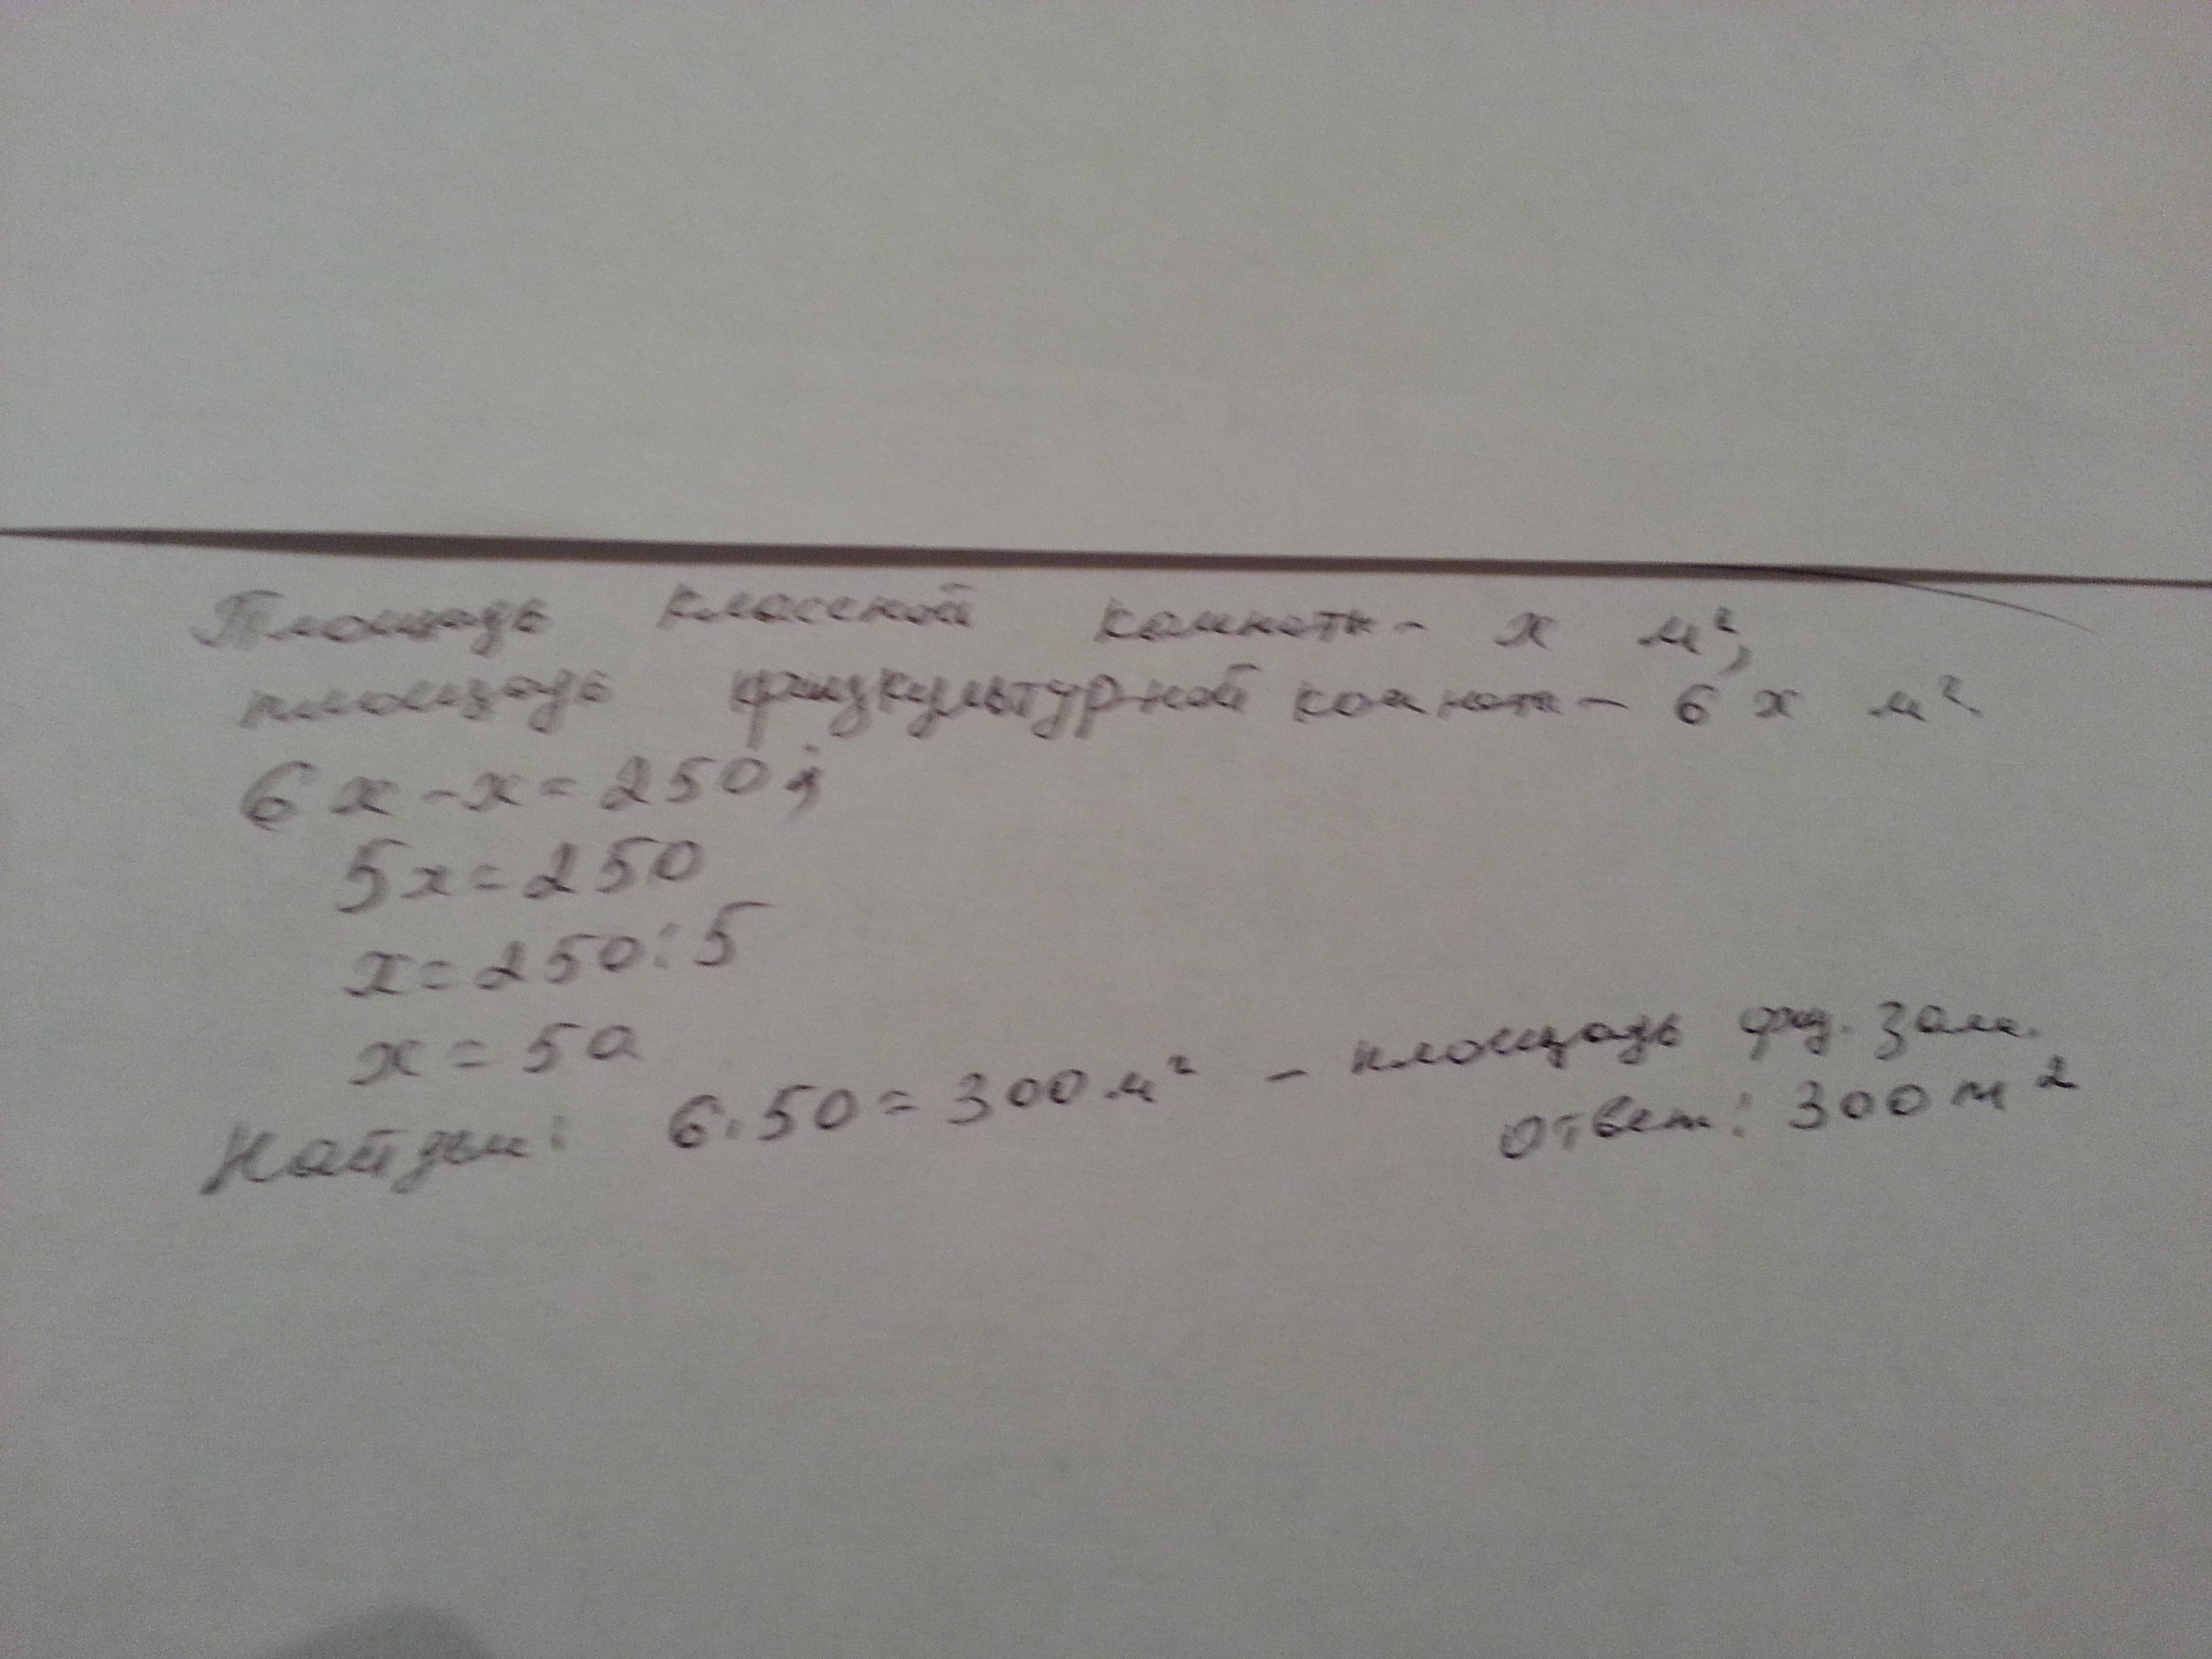 Площадь классной комнаты - x м²,
площадь физкультурной комнаты - 6 x м².
6x - x = 250;
5x = 250
x = 250 : 5
x = 50
Найдём: 6 · 50 = 300 м² - площадь физ. зала.
Ответ: 300 м²